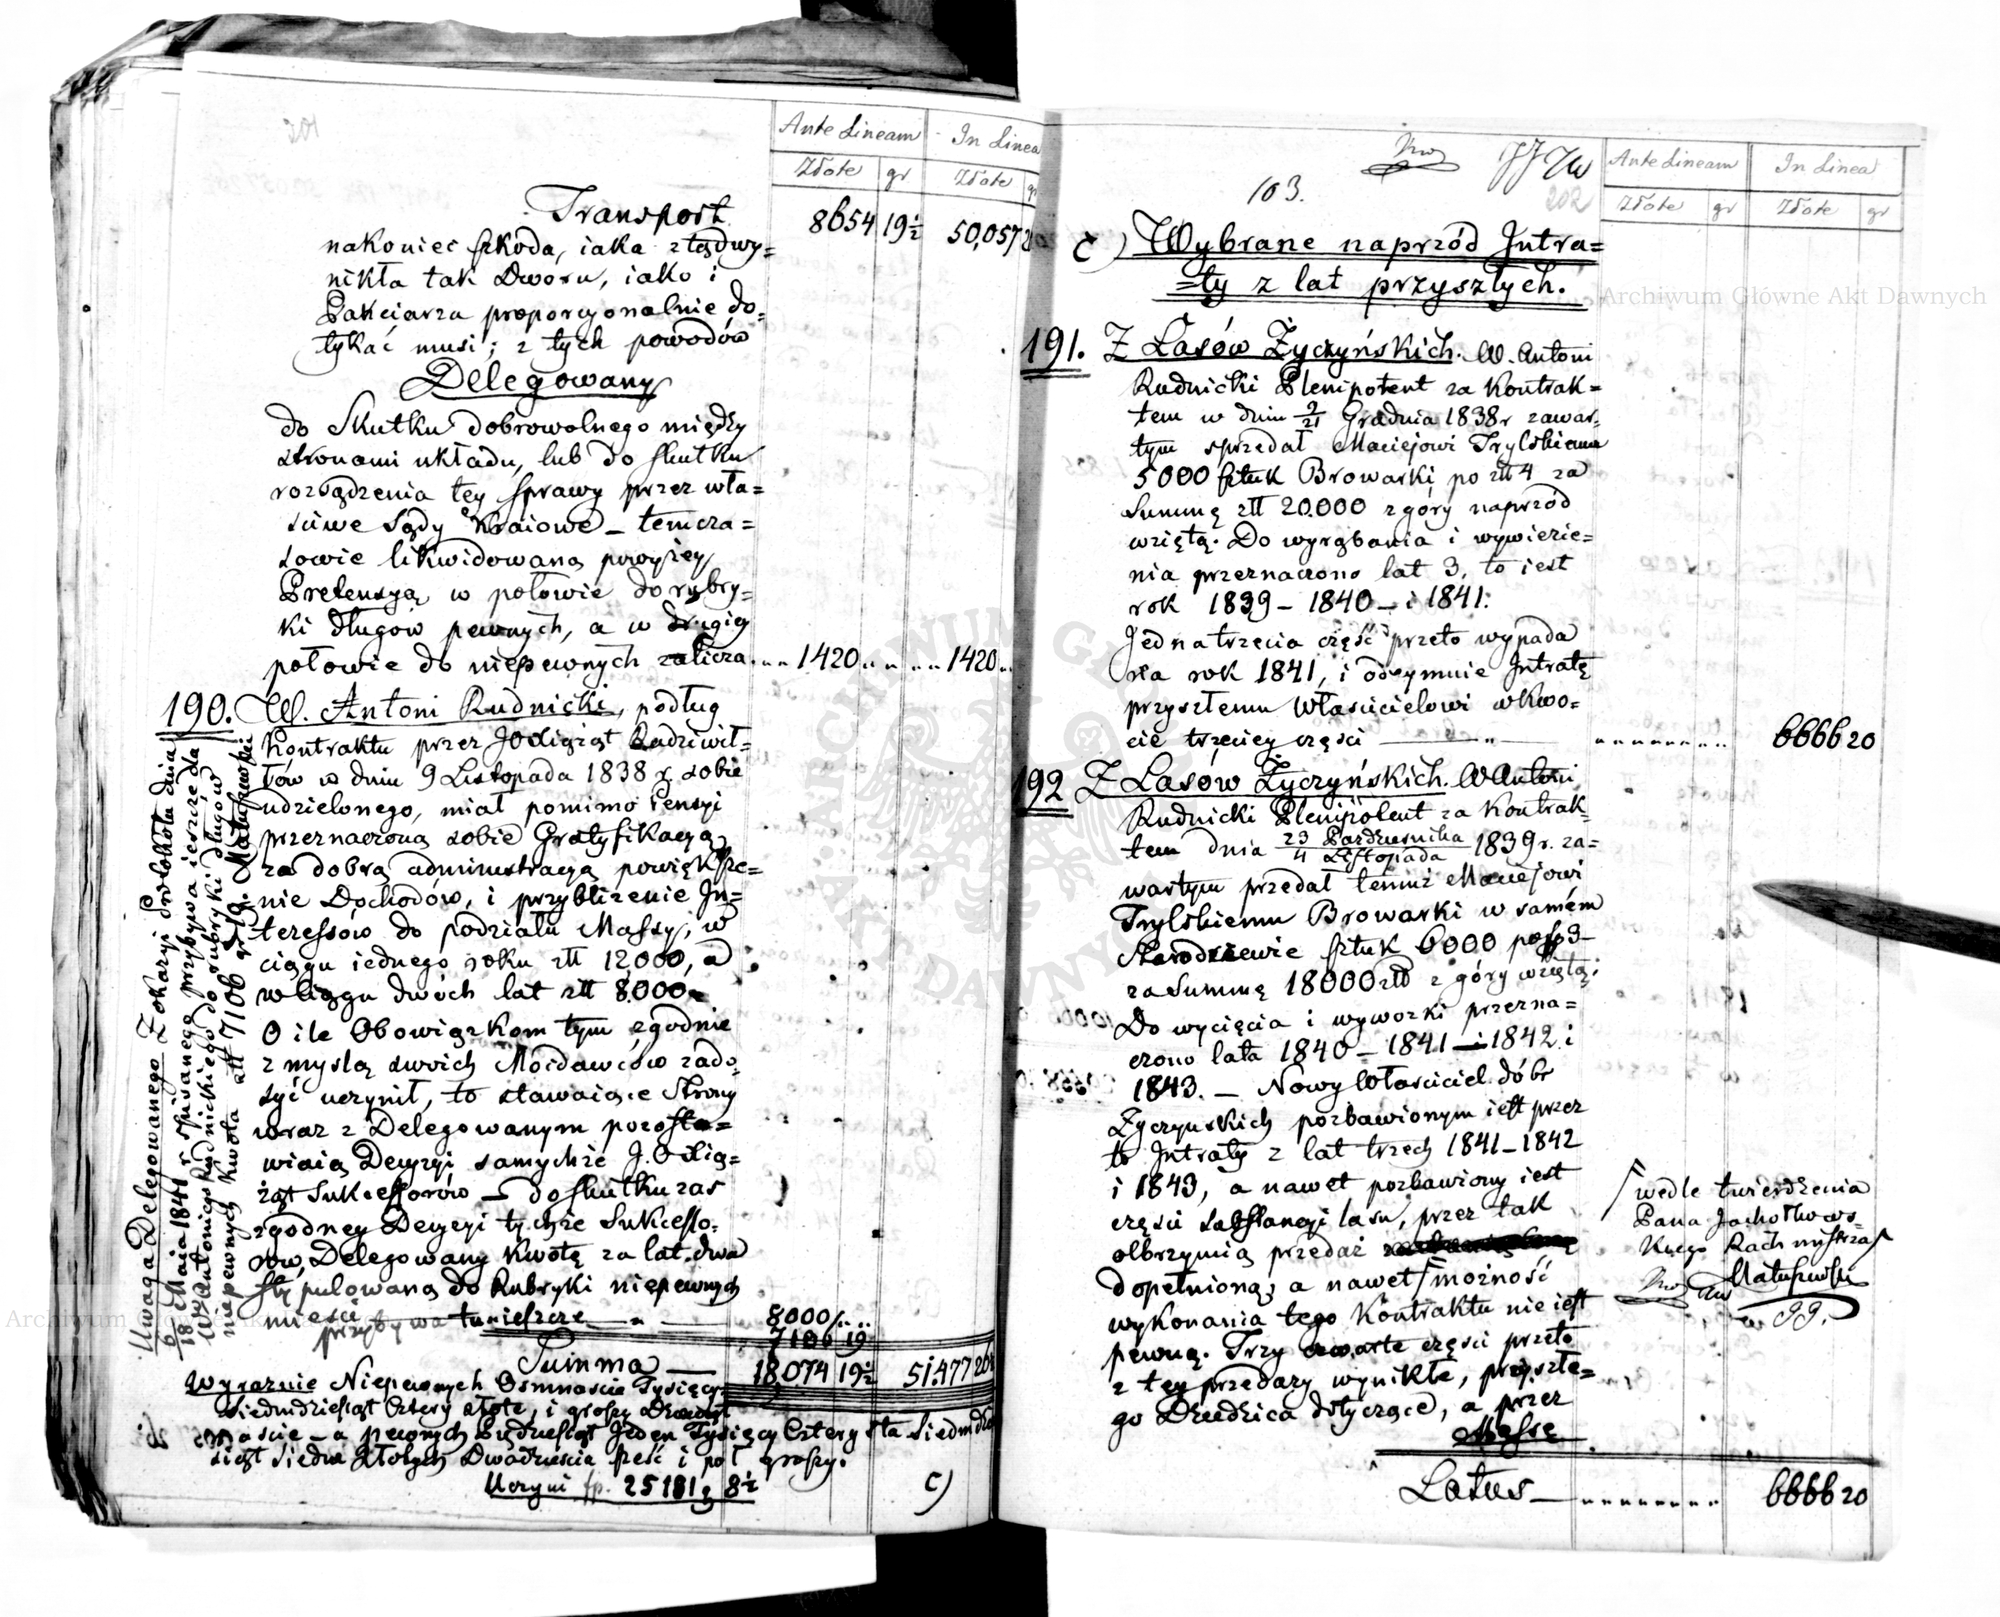 201
Ante Lineam In Linea
Złote gr Złote gr
Transport 8654 19½ 50,057
nakoniec szkoda, iaka z tąd wy=
nikła tak Dworu, iako i
Pakciarza proporcyonalnie do=
tykać musi; z tych powodów
Delegowany
do Skutku dobrowolnego między
stronami układu, lub do skutku
rozsądzenia tey sprawy przez wła=
sciwe sądy Kraiowe – temcza=
sowie likwidowaną powyżey
Pretensyą w połowie do rubry=
ki długów pewnych, a w drugiey
połowie do niepewnych zalicza 1420 1420
190. W. Antoni Rudnicki, podług
Kontraktu przez JO Xiążąt Radziwił=
łów w dniu 9 Listopada 1838 r. sobie
udzielonego, miał pomimo Pensyi
przeznaczoną sobie Gratyfikacyą
za dobrą administracyą powiększe=
nie Dochodów, i przybliżenie In=
teressów do podziału Massy; w
ciągu iednego roku złł 12000, a
w ciągu dwóch lat złł 8000
O ile Obowiązkom tym zgodnie
z myslą swoich Mocdawców zado=
syć uczynił, to stawaiące Strony
wraz z Delegowanym pozosta=
wiaią Decyzyi samychże J.O Xią=
żąt Sukcessorów – do skutku zas
zgodney Decyzyi tychże Sukcesso=
rów, Delegowany Kwotę za lat dwa
stypulowaną do Rubryki niepewnych
mieści 8000
przybywa tu ieszcze 7106 19
Summa 18,074 19½ 51,477 26½
Wyraznie Niepewnych Osmnascie Tysięcy
siedmdziesiąt Cztery złote, i groszy Dziewięt
nascie – a pewnych Pięćdziesiąt Jeden Tysięcy Cztery sta Siedmdzie
siąt siedm Złotych Dwadzieścia sześć i poł groszy.
Uczyni 25181 8½
c)
Uwaga Delegowanego Z okazyi Protokołu dnia
6/18 Maia 1841 r. spisanego przybywa ieszcze dla
W. Antoniego Rudnickiego do rubryki długów
niepewnych Kwota złł 7106 gr 19. Matuszewski
103.
202
Ante Lineam In Linea
Złote gr Złote gr
c) Wybrane naprzód Intra=
=ty z lat przyszłych.
191. Z Lasów Życzyńskich. W. Antoni
Rudnicki Plenipotent za Kontrak=
tem w dniu 9/21 Grudnia 1838 r zawar=
tym sprzedał Maciejowi Trylskiemu
5000 sztuk Browarki po złł 4 za
Summę złł 20.000 z góry naprzód
wziętą. Do wyrąbania i wywiezie=
nia przeznaczono lat 3, to iest
rok 1839 – 1840 – i 1841.
Jedna trzecia część przeto wypada
na rok 1841, i odeymuie Intratę
przyszłemu Właścicielowi w Kwo=
cie trzeciey części 6666 20
192 Z Lasów Życzyńskich. W Antoni
Rudnicki Plenipotent za Kontrak=
tem dnia 23 Pazdziernika/4 Listopada 1839 r. za=
wartym przedał temuż Maciejowi
Trylskiemu Browarki w samém
sztuk 6000 po złł 3 –
za Summę 18000 złł z góry wziętą;
Do wycięcia i wywozki przezna=
czono lata 1840 – 1841 – i 1842 i
1843. – Nowy Właściciel dóbr
Życzynskich pozbawionym iest przez
to Intraty z lat trzech 1841 – 1842
i 1843, a nawet pozbawiony iest
części substancyi lasu, przez tak
olbrzymią przedaż
dopełnioną; a nawet możność
wykonania tego Kontraktu nie iest
pewną. Trzy czwarte części przeto
z tey przedaży wynikłe, przyszłe=
go Dziedzica dotyczące, a przez
Massę
wedle twierdzenia
Pana Jachołkows=
kiego
Matuszewski
Latus 6666 20
Archiwum Główne Akt Dawnych
Archiwum Główne Akt Dawnych
ARCHIWUM GŁÓWNE AKT DAWNYCH